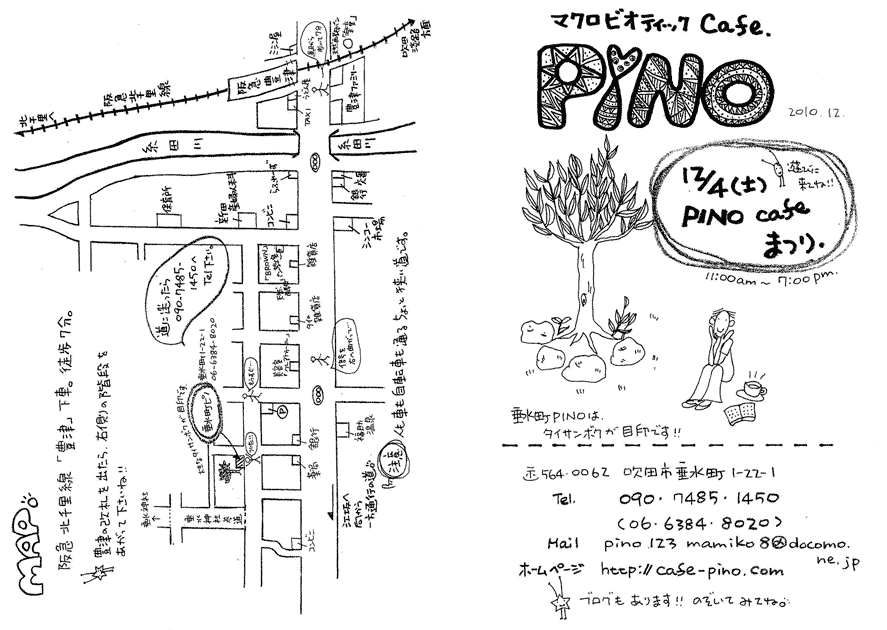 マクロビオティック Cafe.
PINO
2010.12.
12/4(土)
PINO cafe
まつり.
遊びに
来てね!!
11:00am～7:00pm.
垂水町PINOは、
タイサンボクが目印です!!
〒564-0062 吹田市垂水町1-22-1
Tel. 090-7485-1450
(06-6384-8020)
Mail pino123mamiko8@docomo.
ne.jp
ホームページ http://cafe-pino.com
ブログもあります!! のぞいてみてね。
MAP。
阪急北千里線「豊津」下車。徒歩7分。
豊津の改札を出たら、右側の階段を
あがって下さいね!!
北千里へ
阪急北千里線
阪急豊津
ミシン屋
吹田
淡路
梅田
TAXI
豊津ファミリー
糸田川
糸田川
保育所
コンビニ
雑貨店
道に迷ったら
090-7485-
1450へ
Tel下さい。
垂水町1-22-1
06-6384-8020
垂水町ピノ
P
銀行
薬局
コンビニ
垂水神社
垂水神社参道
福助
温泉
江坂へ
一方通行の道。
注意
人も車も自転車も通るちょっと狭い道です。